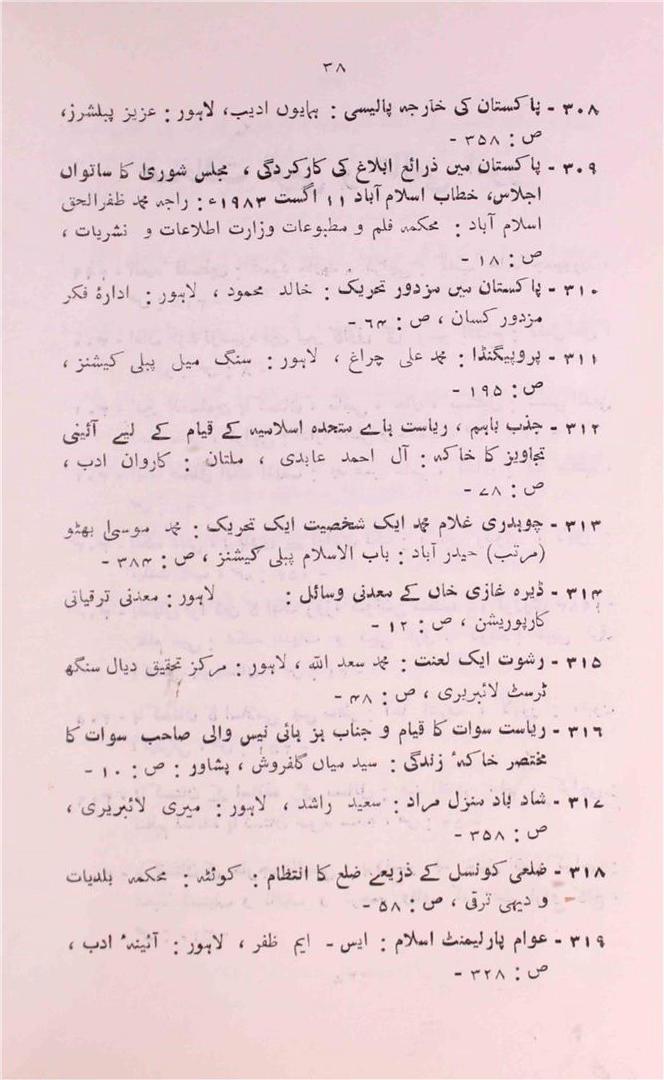 ۳۸
۳۰۸ - پاکستان کی خارجہ پالیسی : ہمایوں ادیب، لاہور : عزیز پبلشرز،
ص : ۳۵۸ -
۳۰۹ - پاکستان میں ذرائع ابلاغ کی کارکردگی ، مجلس شوریٰ کا ساتواں
اجلاس، خطاب اسلام آباد ۱۱ اگست ۱۹۸۳ء : راجہ محمد ظفرالحق
اسلام آباد : محکمہ فلم و مطبوعات وزارت اطلاعات و نشریات ،
ص : ۱۸ -
۳۱۰ - پاکستان میں مزدور تحریک : خالد محمود ، لاہور : ادارۂ فکر
مزدور کسان ، ص : ۶۴ -
۳۱۱ - پروپیگنڈا : محمد علی چراغ ، لاہور : سنگ میل پبلی کیشنز ،
ص : ۱۹۵ -
۳۱۲ - جذب باہم ، ریاست ہاے متحدہ اسلامیہ کے قیام کے لیے آئینی
تجاویز کا خاکہ : آل احمد عابدی ، ملتان : کاروان ادب ،
ص : ۷۸ -
۳۱۳ - چوہدری غلام محمد ایک شخصیت ایک تحریک : محمد موسیٰ بھٹو
(مرتب) حیدر آباد : باب الاسلام پبلی کیشنز ، ص : ۳۸۴ -
۳۱۴ - ڈیرہ غازی خاں کے معدنی وسائل : لاہور : معدنی ترقیاتی
کارپوریشن ، ص : ۱۲ -
۳۱۵ - رشوت ایک لعنت : محمد سعد اللہ ، لاہور : مرکز تحقیق دیال سنگھ
ٹرسٹ لائبریری ، ص : ۴۸ -
۳۱۶ - ریاست سوات کا قیام و جناب ہز ہائی نیس والی صاحب سوات کا
مختصر خاکۂ زندگی : سید میاں گلفروش ، پشاور : ص : ۱۰ -
۳۱۷ - شاد باد منزل مراد : سعید راشد ، لاہور : میری لائبریری ،
ص : ۳۵۸ -
۳۱۸ - ضلعی کونسل کے ذریعے ضلع کا انتظام : کوئٹہ : محکمہ بلدیات
و دیہی ترقی ، ص : ۵۸ -
۳۱۹ - عوام پارلیمنٹ اسلام : ایس - ایم ظفر ، لاہور : آئینۂ ادب ،
ص : ۳۲۸ -